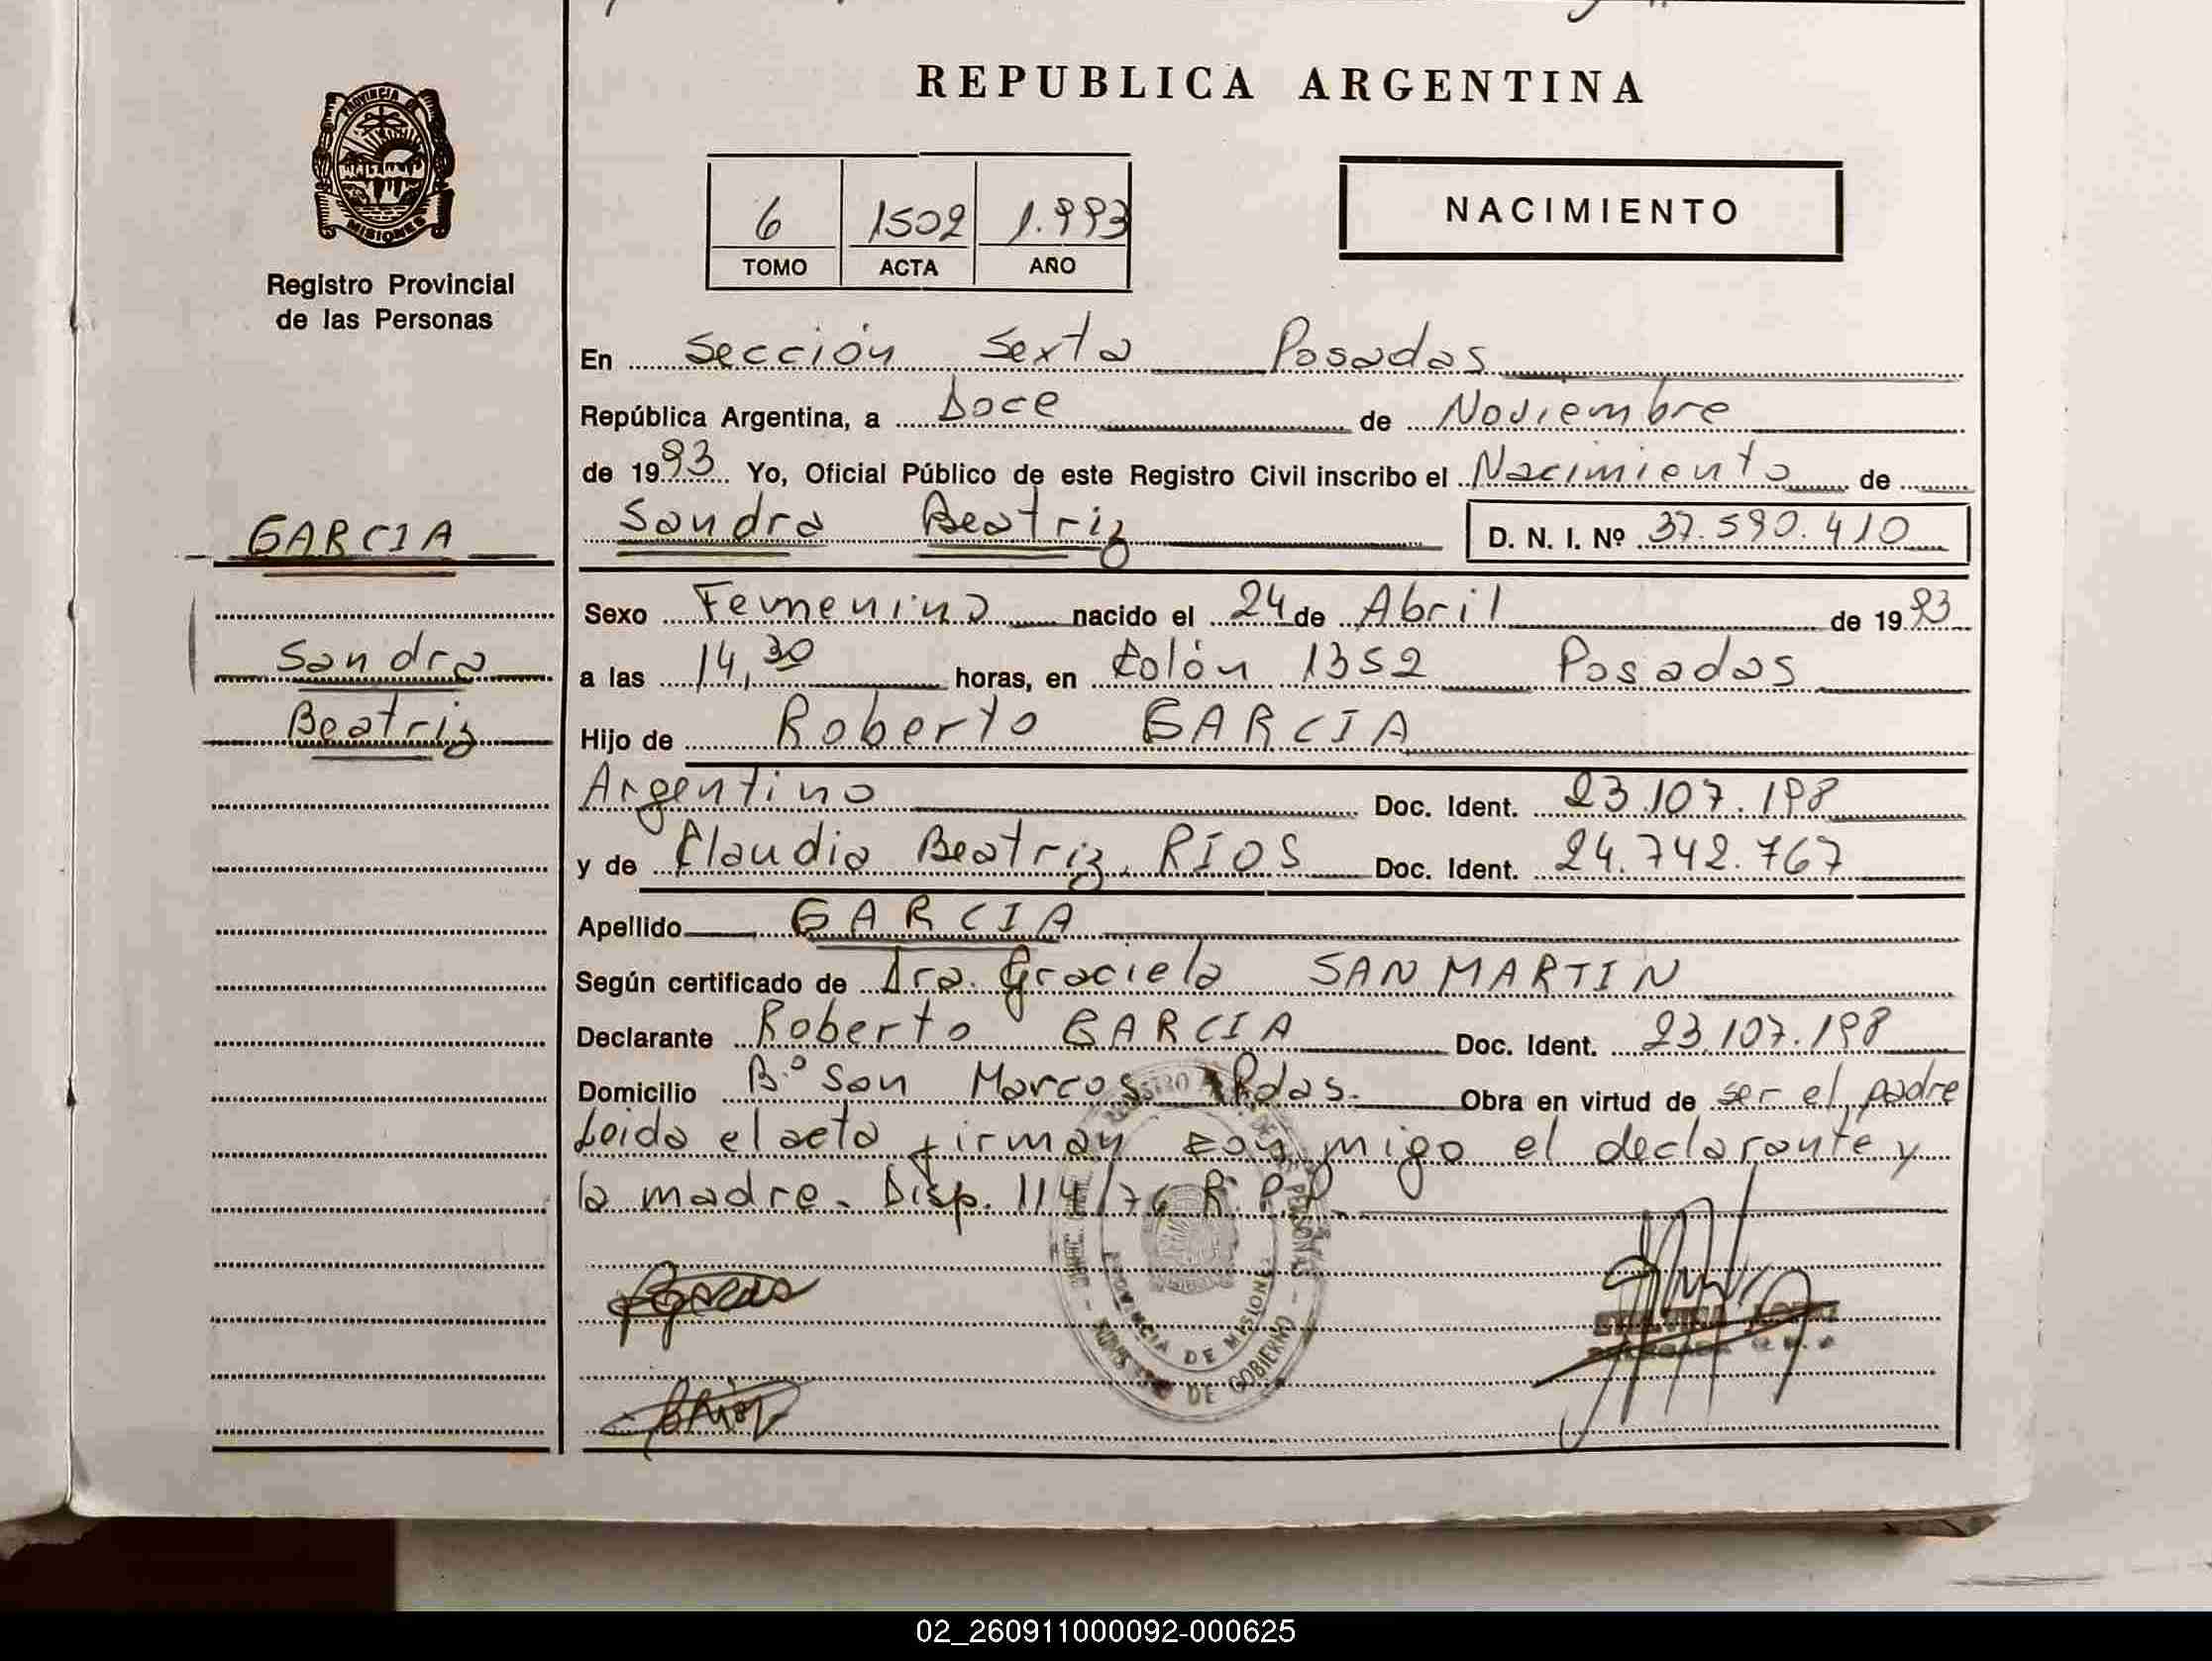 REPUBLICA ARGENTINA
PROVINCIA DE
MISIONES
Registro Provincial
de las Personas
6 1502 1.993
TOMO ACTA AÑO
NACIMIENTO
En Sección Sexta Posadas
República Argentina, a Doce de Noviembre
de 1993 Yo, Oficial Público de este Registro Civil inscribo el Nacimiento de
Sandra Beatriz D. N. I. Nº 37.590.410
GARCIA
Sandra
Beatriz
Sexo Femenino nacido el 24 de Abril de 1993
a las 14,30 horas, en Colón 1352 Posadas
Hijo de Roberto GARCIA
Argentino Doc. Ident. 23.107.198
y de Claudia Beatriz RIOS Doc. Ident. 24.742.767
Apellido GARCIA
Según certificado de Dra. Graciela SAN MARTIN
Declarante Roberto GARCIA Doc. Ident. 23.107.198
Domicilio B.º San Marcos Pdas. Obra en virtud de ser el padre
Leida el acta firman con migo el declarante y
la madre. Disp. 114/76 R.P.P.
PROVINCIA DE MISIONES
DE GOBIERNO
02_260911000092-000625